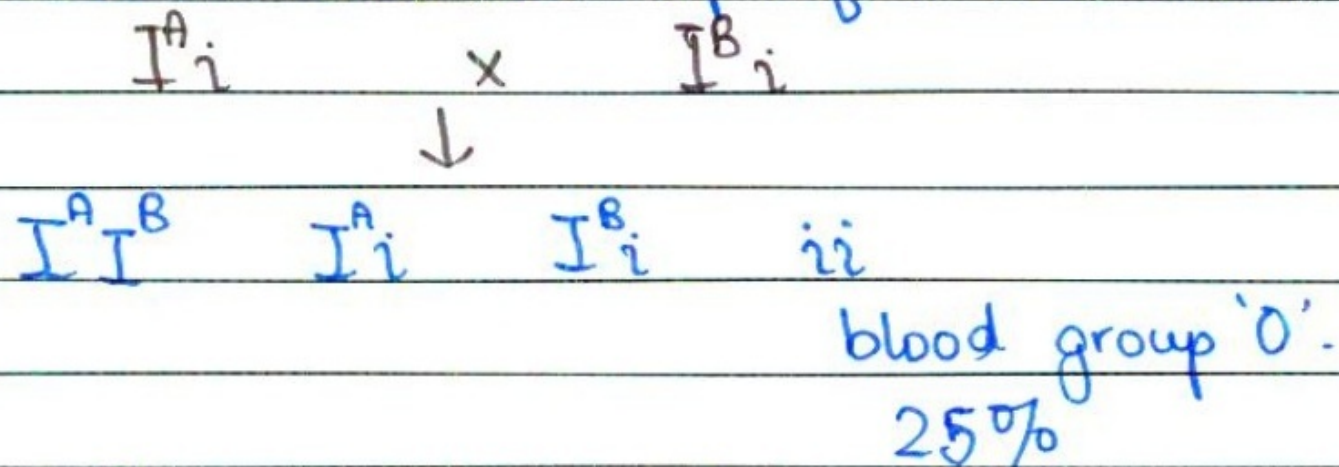 Iᴬi × Iᴮi
↓
IᴬIᴮ Iᴬi Iᴮi ii
blood group 'O'.
25%